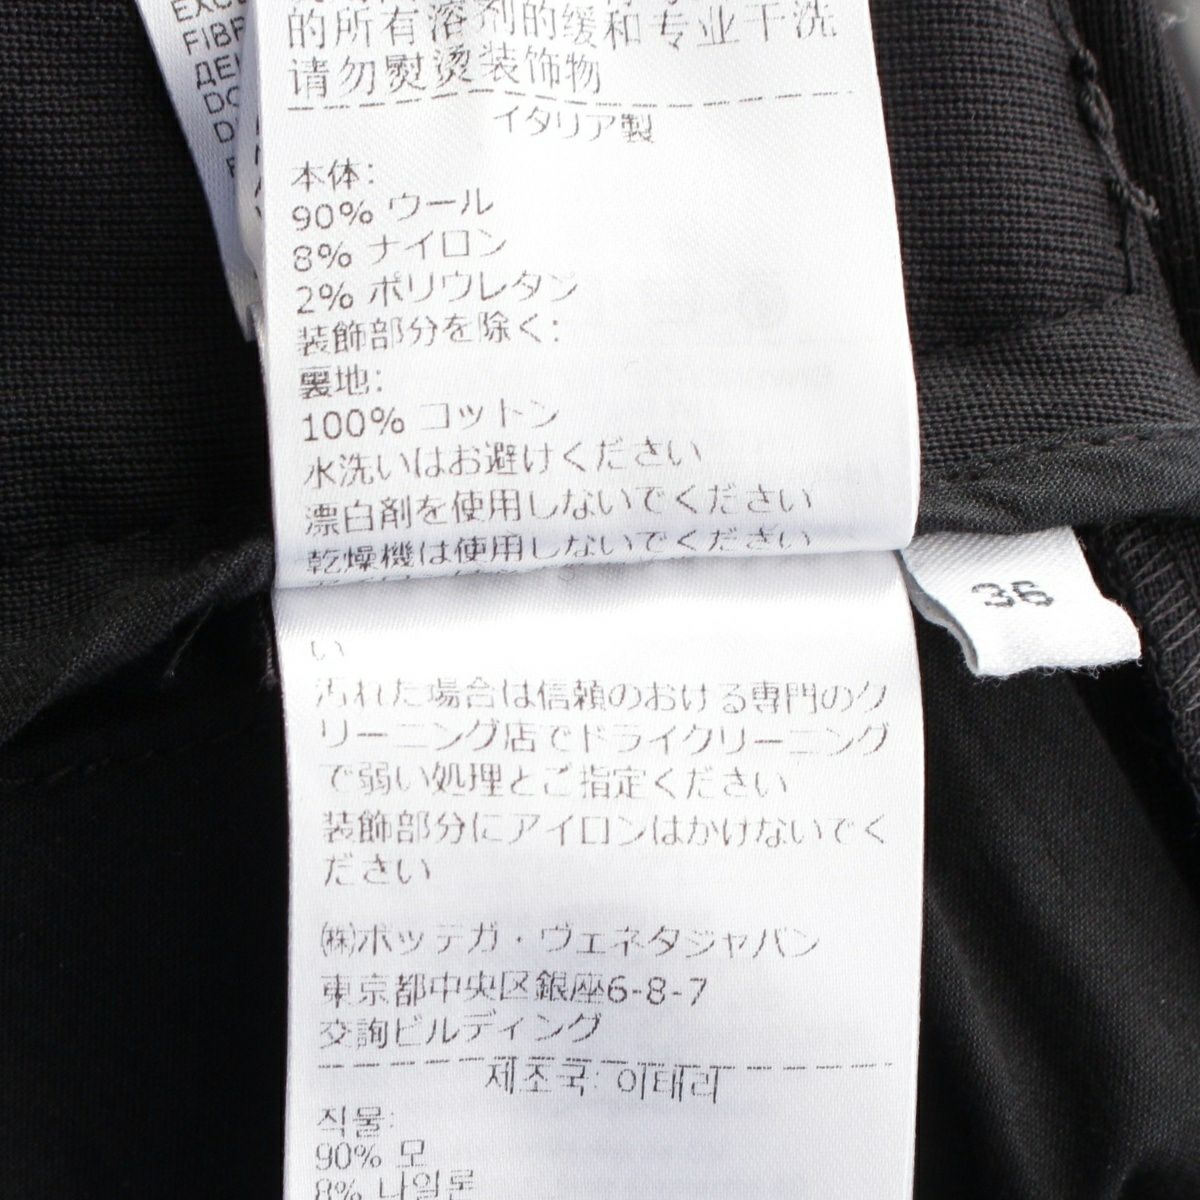 EXC
FIBR
ДЕК
DO
的所有溶剂的缓和专业干洗
请勿熨烫装饰物
イタリア製
本体:
90% ウール
8% ナイロン
2% ポリウレタン
装飾部分を除く:
裏地:
100% コットン
水洗いはお避けください
漂白剤を使用しないでください
乾燥機は使用しないでください
36
い
汚れた場合は信頼のおける専門のク
リーニング店でドライクリーニング
で弱い処理とご指定ください
装飾部分にアイロンはかけないでく
ださい
㈱ボッテガ・ヴェネタジャパン
東京都中央区銀座6-8-7
交詢ビルディング
제조국: 이태리
직물:
90% 모
8% 나일론